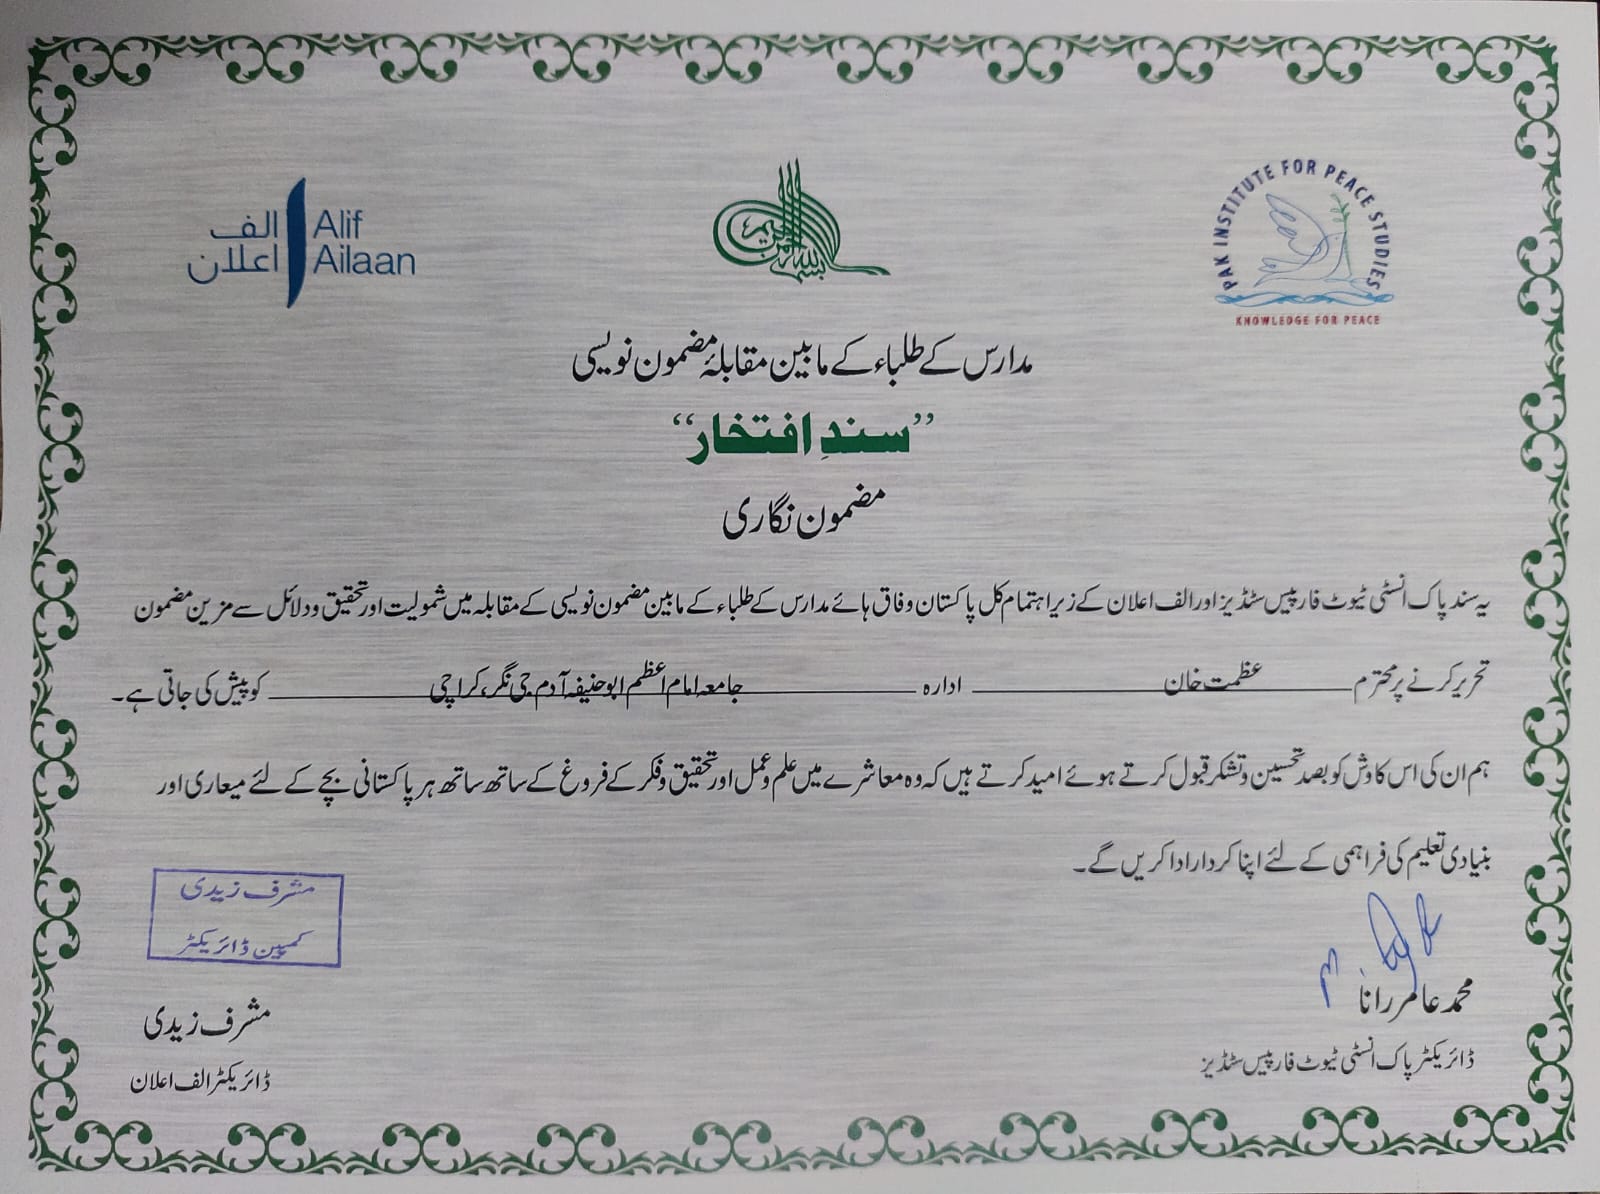 الف اعلان
Alif Ailaan
بسم اللہ الرحمن الرحیم
PAK INSTITUTE FOR PEACE STUDIES
KNOWLEDGE FOR PEACE
مدارس کے طلباء کے مابین مقابلۂ مضمون نویسی
”سندِ افتخار“
مضمون نگاری
یہ سند پاک انسٹی ٹیوٹ فار پیس سٹڈیز اور الف اعلان کے زیر اہتمام کل پاکستان وفاق ہائے مدارس کے طلباء کے مابین مضمون نویسی کے مقابلہ میں شمولیت اور تحقیق و دلائل سے مزین مضمون
تحریر کرنے پر محترم عظمت خان ادارہ جامعہ امام اعظم ابو حنیفہ آدم جی نگر، کراچی کو پیش کی جاتی ہے۔
ہم ان کی اس کاوش کو بصد تحسین و تشکر قبول کرتے ہوئے امید کرتے ہیں کہ وہ معاشرے میں علم و عمل اور تحقیق و فکر کے فروغ کے ساتھ ساتھ ہر پاکستانی بچے کے لئے معیاری اور
بنیادی تعلیم کی فراہمی کے لئے اپنا کردار ادا کریں گے۔
محمد عامر رانا
ڈائریکٹر پاک انسٹی ٹیوٹ فار پیس سٹڈیز
مشرف زیدی
کمپین ڈائریکٹر
مشرف زیدی
ڈائریکٹر الف اعلان